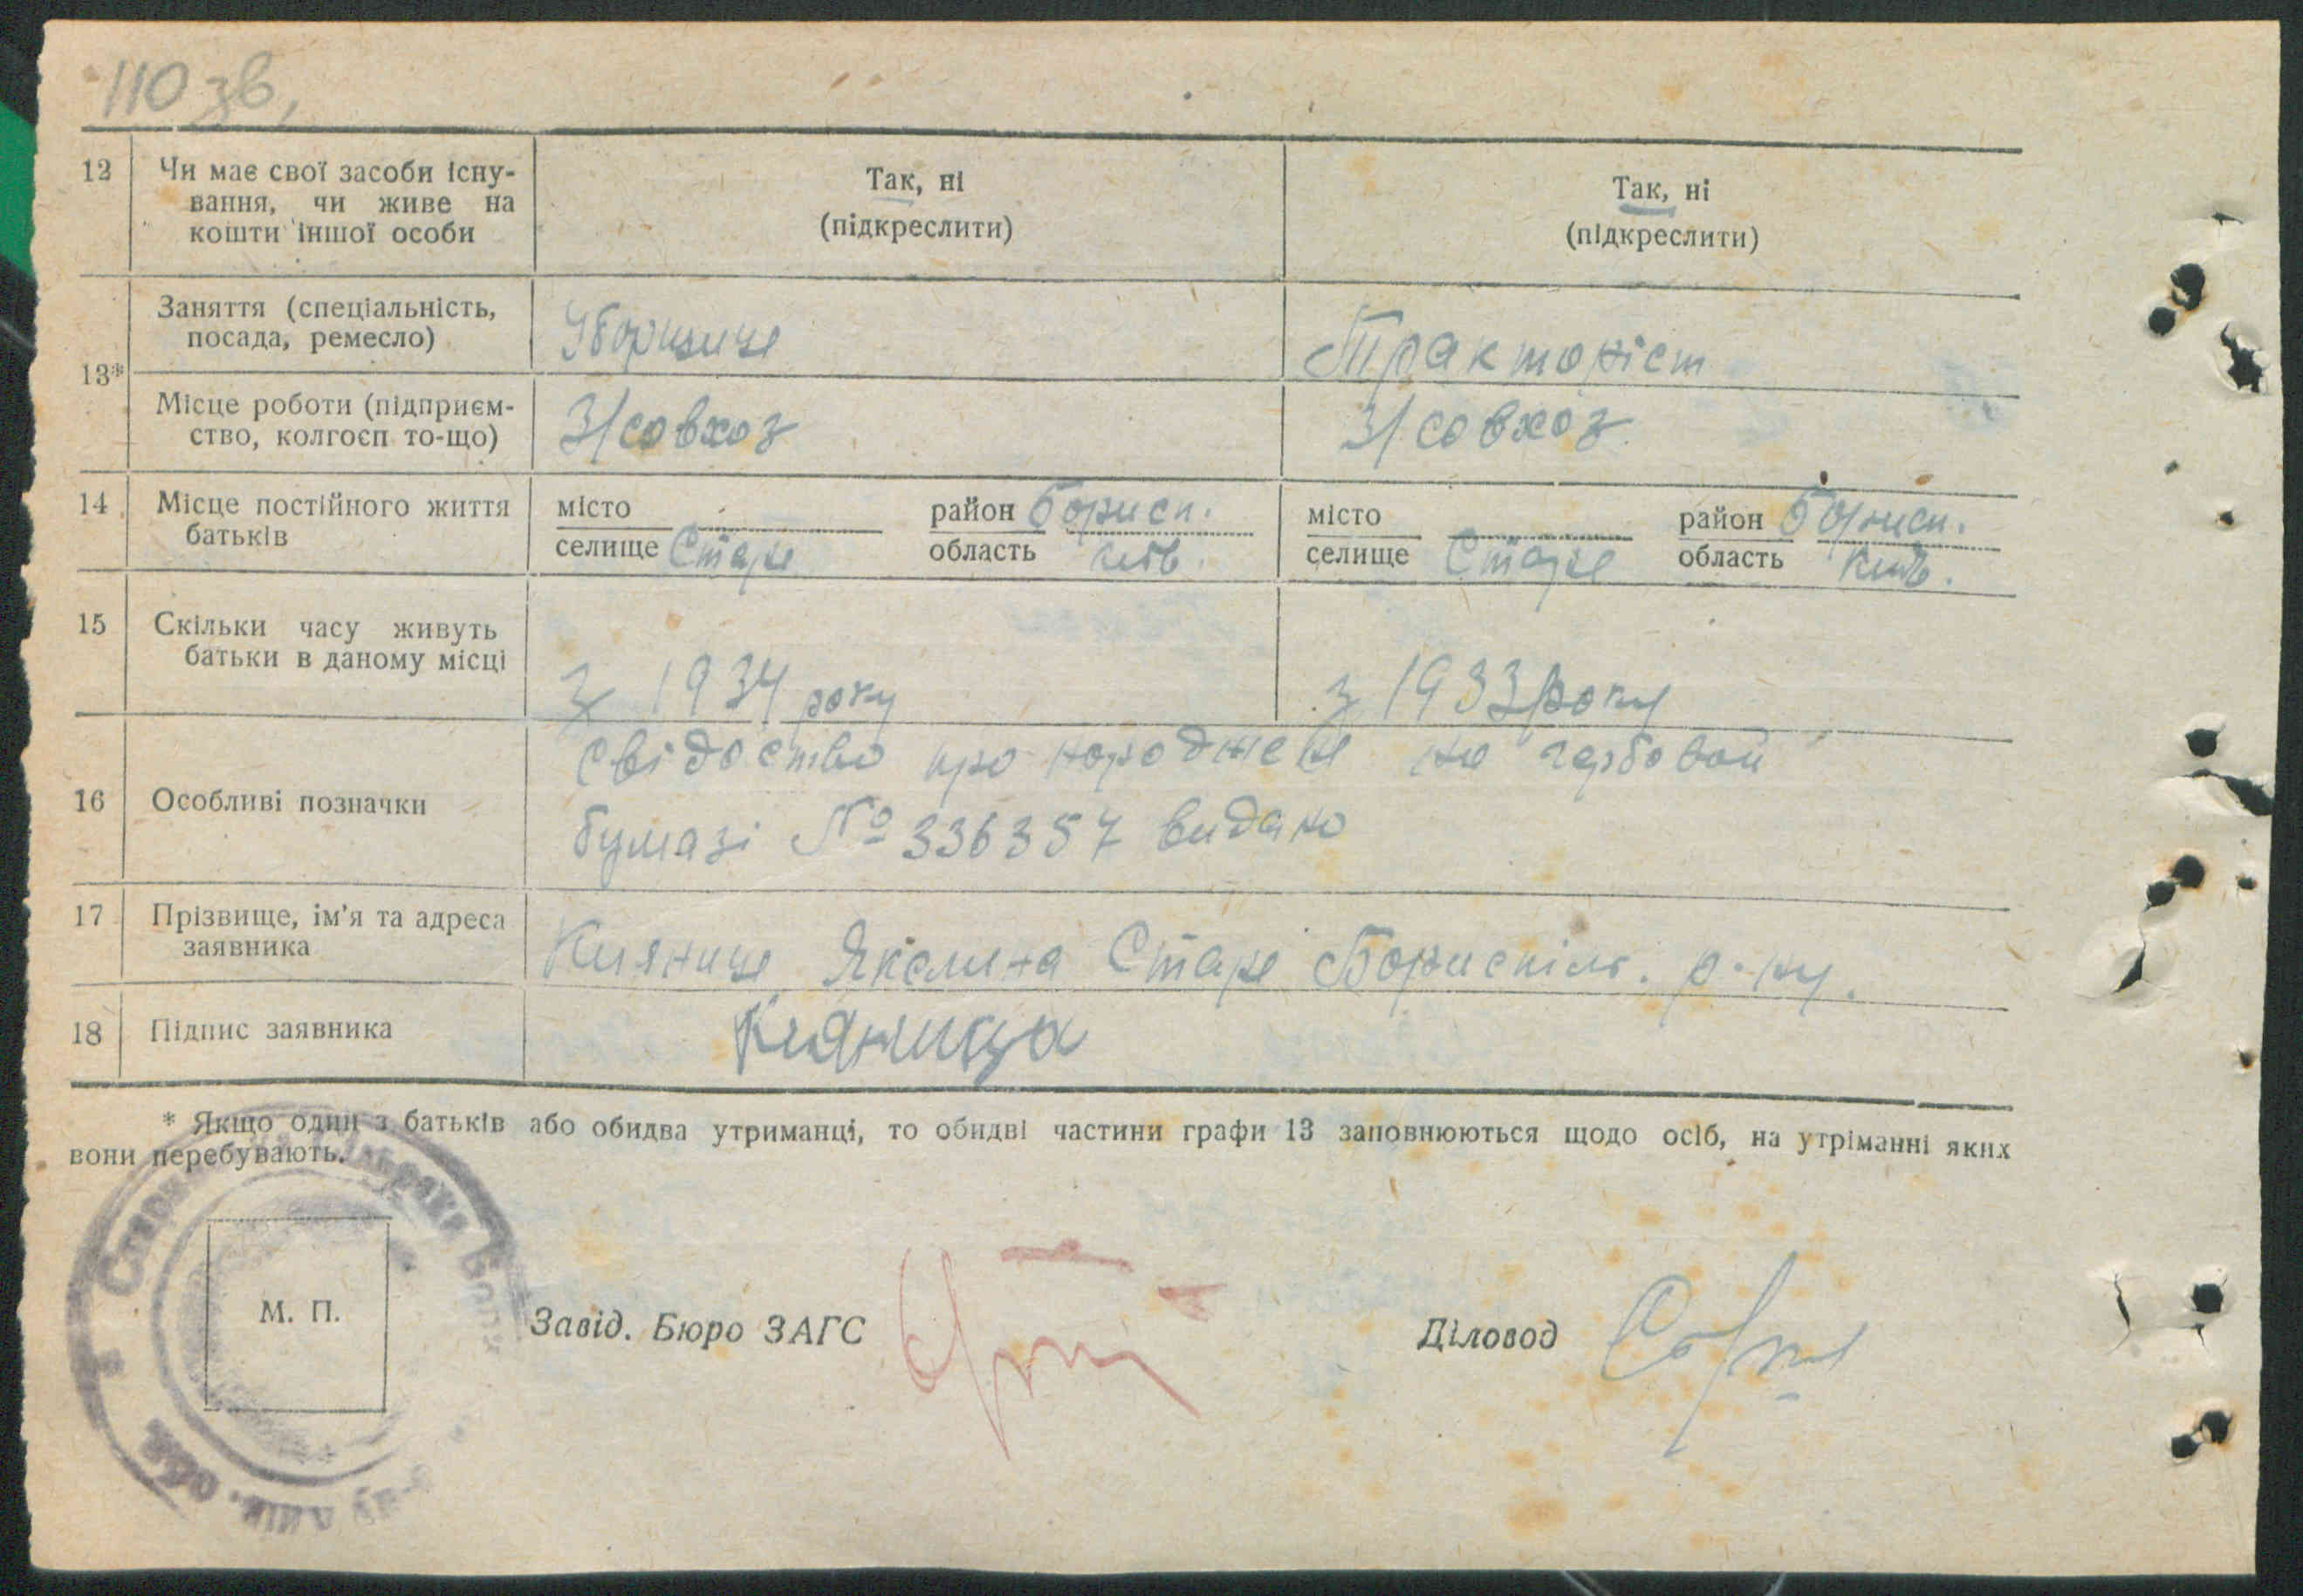 110 зв,
12 Чи має свої засоби існу-
вання, чи живе на
кошти іншої особи
Так, ні
(підкреслити)
Так, ні
(підкреслити)
13*
Заняття (спеціальність,
посада, ремесло)
Уборщиця
Тракторіст
Місце роботи (підприєм-
ство, колгосп то-що)
З/совхоз
З/совхоз
14 Місце постійного життя
батьків
місто
селище Старе
район Борисп.
область Київ.
місто
селище Старе
район Борисп.
область Київ.
15 Скільки часу живуть
батьки в даному місці
з 1934 року
з 1933 року
16 Особливі позначки
свідоство про народжен на гербовой
бумазі № 336357 видано
17 Прізвище, ім'я та адреса
заявника
Кияниця Якелина Старе Бориспіль. р-ну.
18 Підпис заявника
Кияница
* Якщо один з батьків або обидва утриманці, то обидві частини графи 13 заповнюються щодо осіб, на утріманні яких
вони перебувають.
М. П.
Завід. Бюро ЗАГС
Діловод